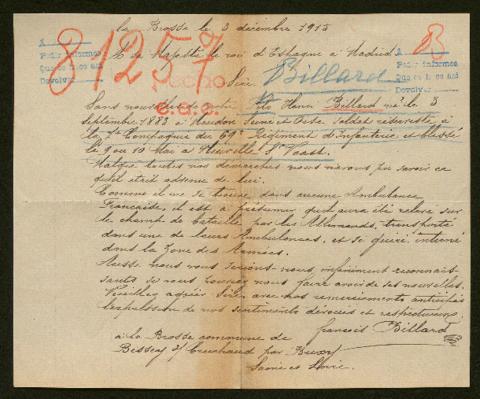 la Brosse le 3 décembre 1915
A
Pedir informes
Que se hizo así
Devolver
81257
A
B
Pedir informes
Que se hizo así
Devolver
A Sa Majesté le roi d'Espagne à Madrid
Sire
Billard
HECHO
Sans nouvelles de notre fils Henri Billard né le 3
septembre 1882 à Meudon Seine et Oise soldat réserviste, à
la Compagnie du 69e Régiment d'infanterie, et blessé
le 9 ou 10 Mai à Neuville St Vaast.
Malgré toutes nos démarches nous n'avons pu savoir ce
qu'il était advenu de lui.
Comme il ne se trouve dans aucune Ambulance
Française, il est à présumer qu'il aura été relevé sur
le champ de bataille par les Allemands, transporté
dans une de leurs Ambulances, et se guéri, interné
dans la Zone des Armées.
Aussi nous vous serions-nous infiniment reconnais-
sants si vous pouvez nous faire avoir de ses nouvelles.
Veuillez agréer Sire, avec nos remerciements anticipés
l'expression de nos sentiments dévoués et respectueux.
françois Billard
à la Brosse commune de
Bissey s/ Cruchaud par Buxy
Saône et Loire.